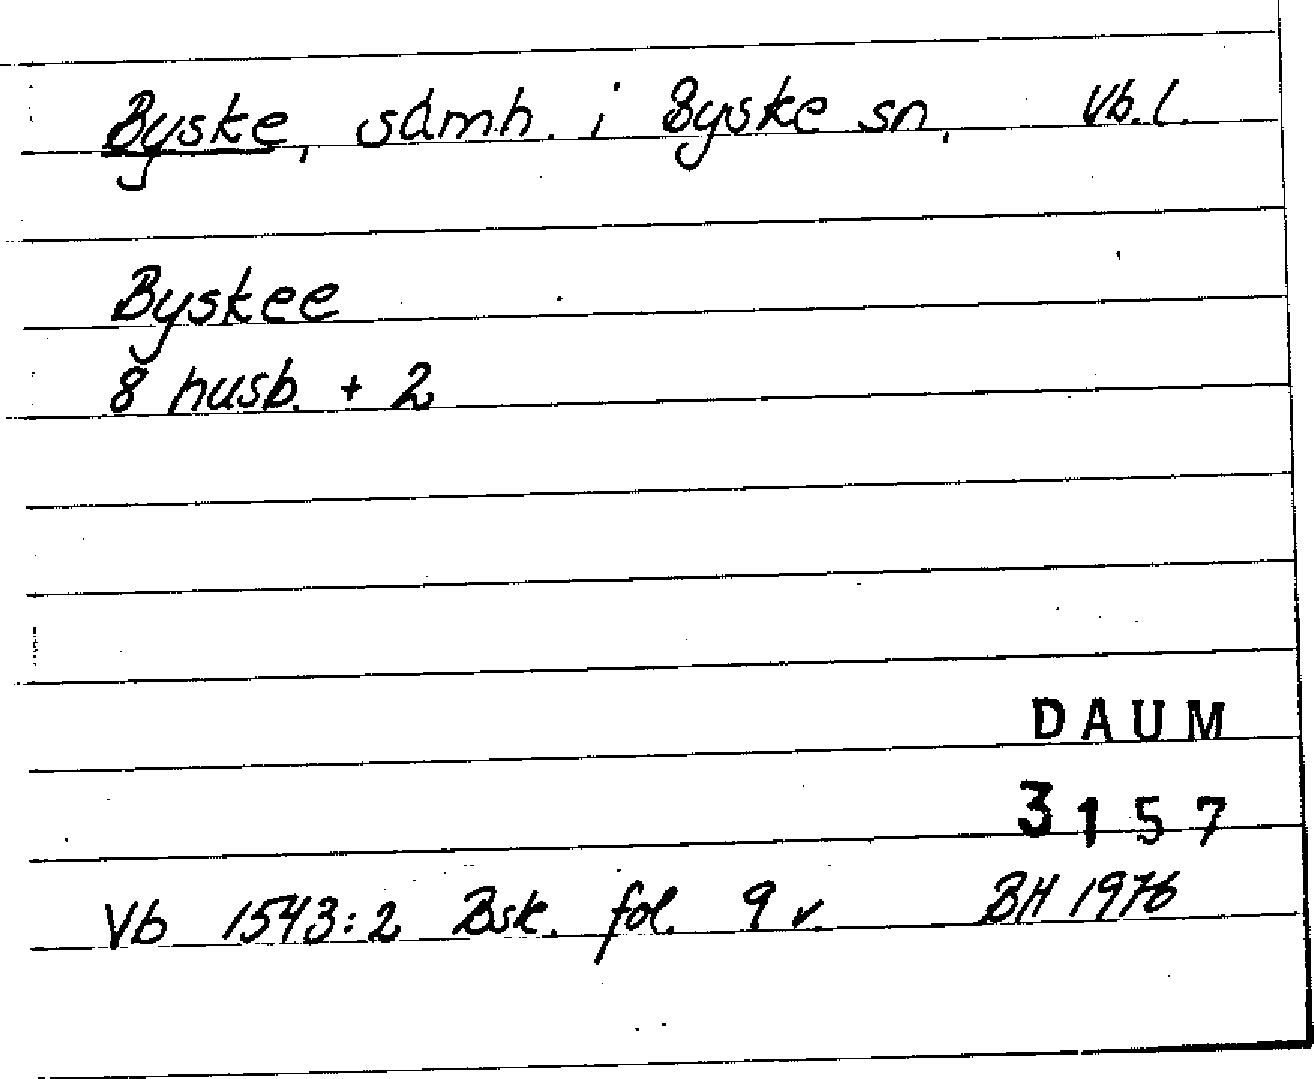 Byske, samh. i Byske sn, Vb. l.
Byskee
8 husb. + 2
DAUM
3157
Vb 1543:2 Bsk. fol. 9 v. BH 1976